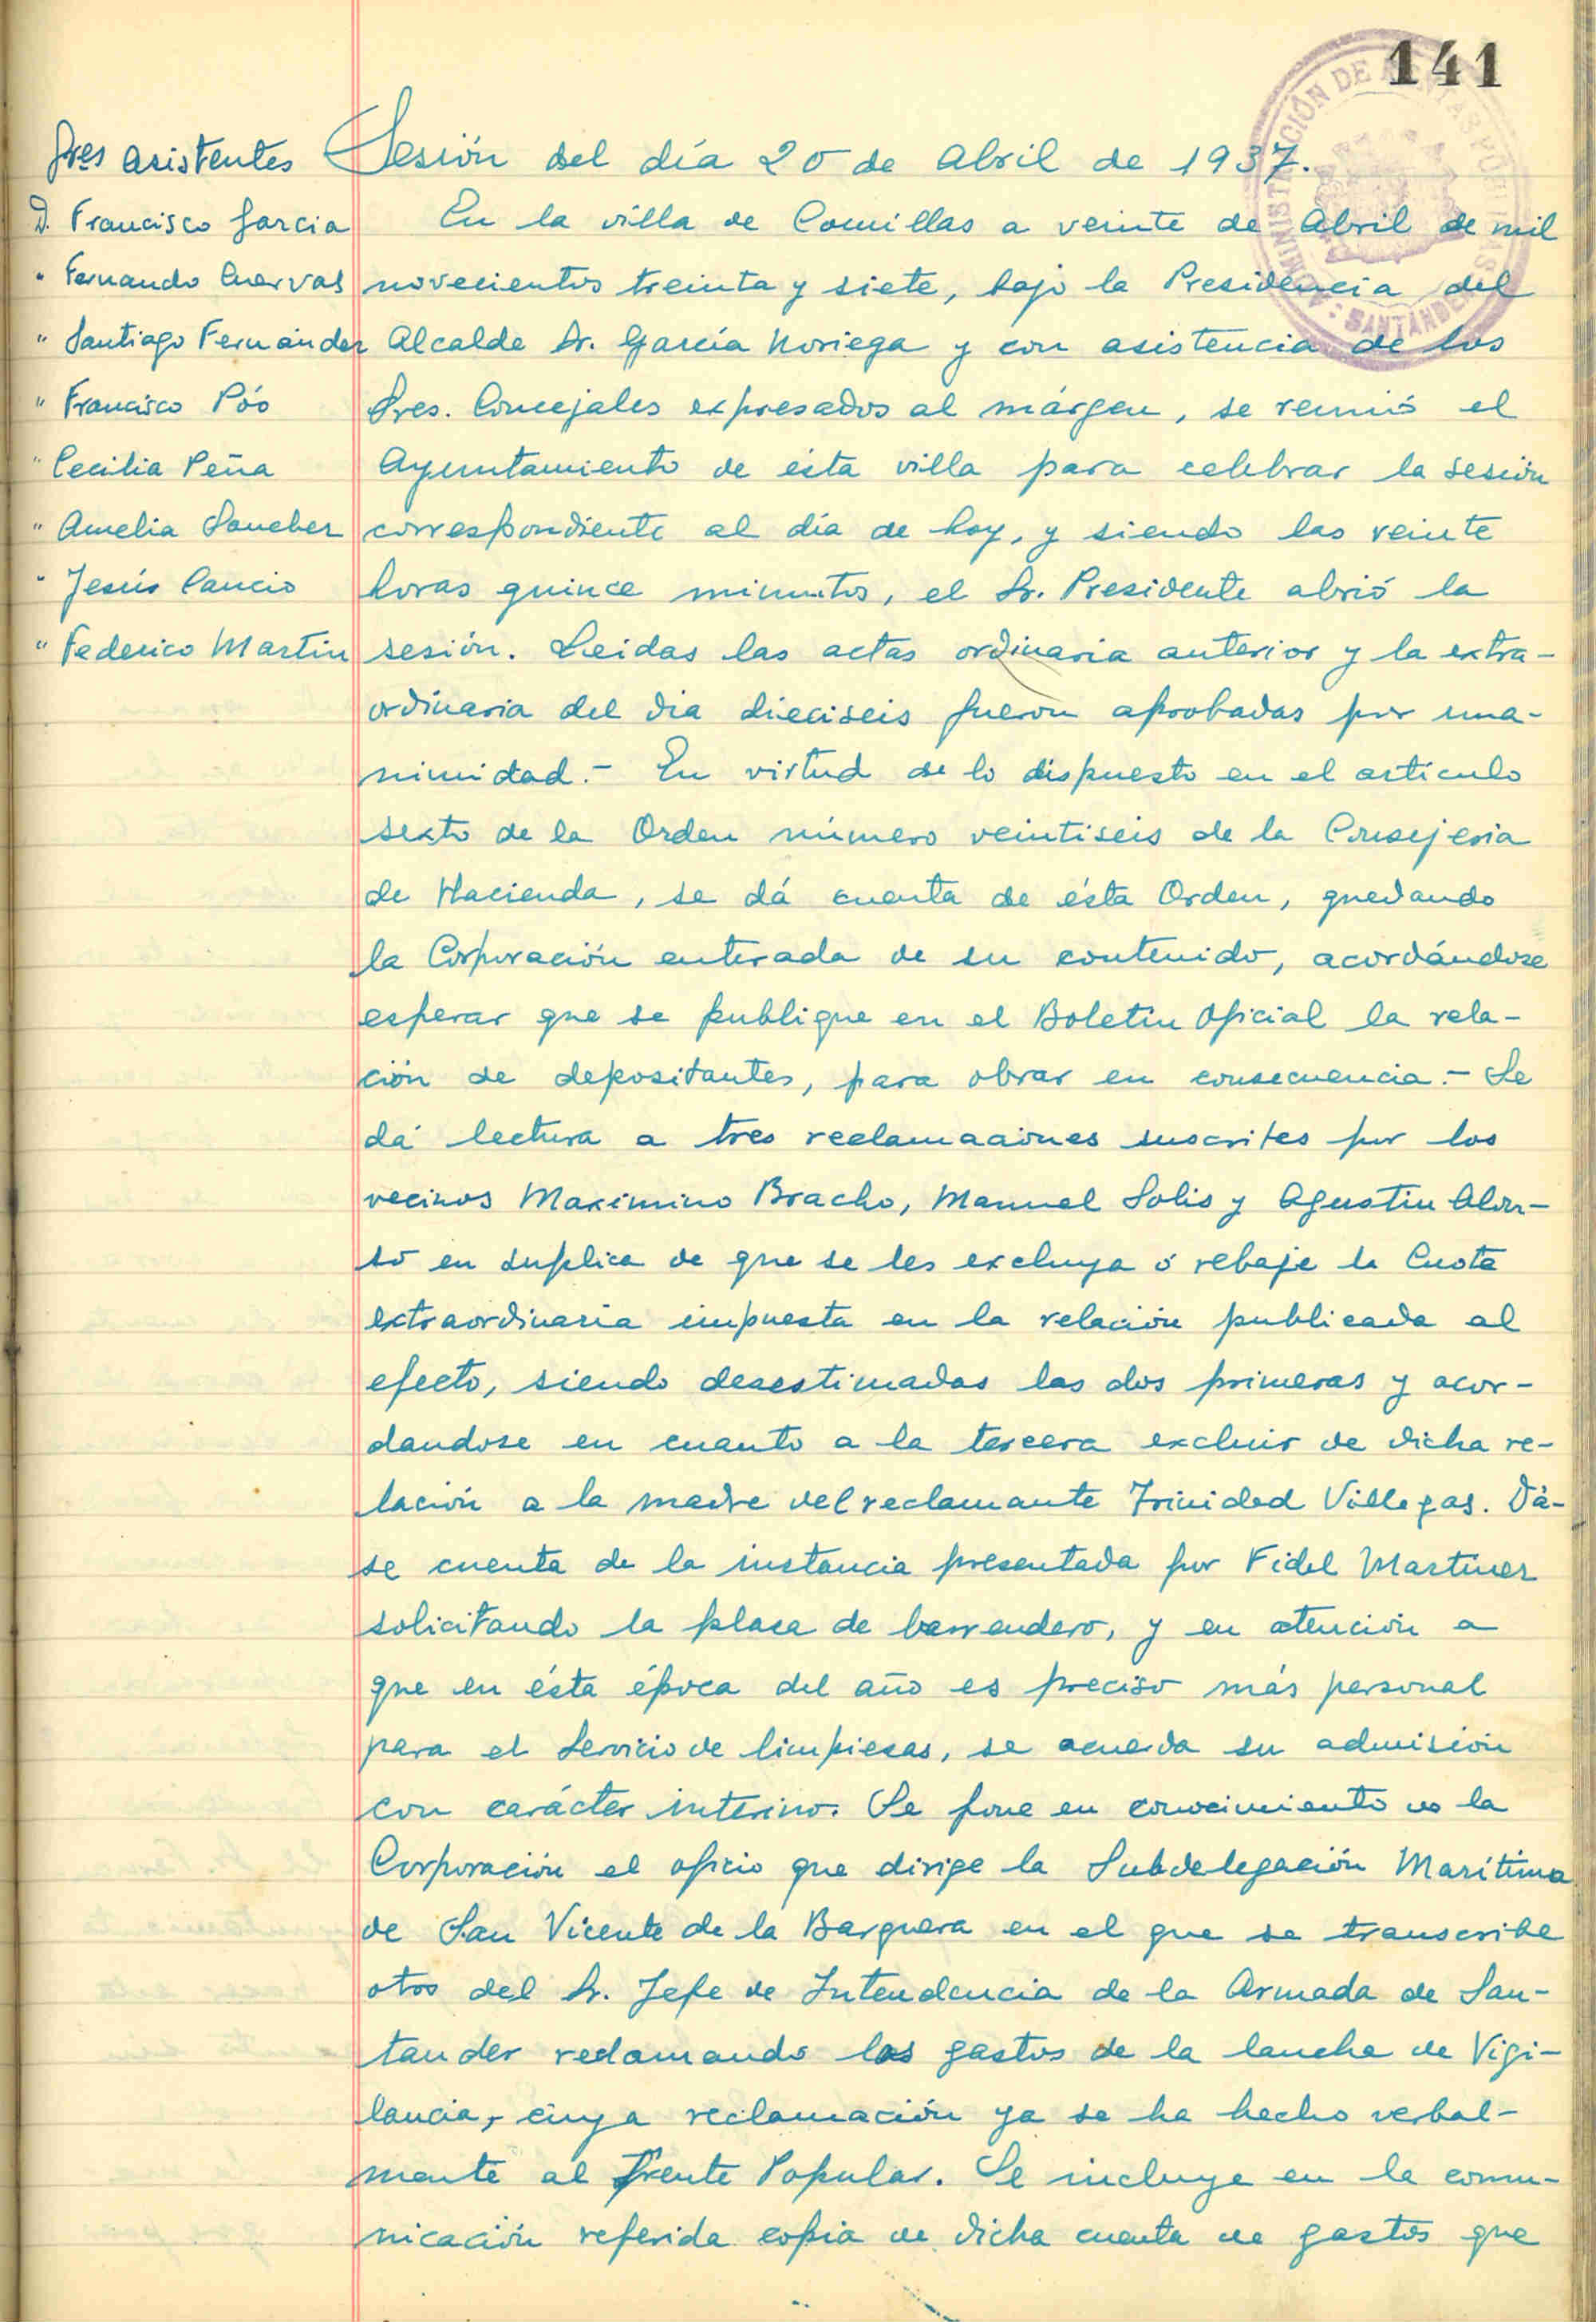 141
ADMINISTRACIÓN DE RENTAS PÚBLICAS
SANTANDER
Sres asistentes
D. Francisco Garcia
" Fernando Cuervas
" Santiago Fernández
" Francisco Póo
" Cecilia Peña
" Amelia Sanchez
" Jesús Cancio
" Federico Martin
Sesión del día 20 de Abril de 1937.
En la villa de Comillas a veinte de Abril de mil
novecientos treinta y siete, bajo la Presidencia del
Alcalde Sr. García Noriega y con asistencia de los
Sres. Concejales expresados al márgen, se reunió el
Ayuntamiento de ésta villa para celebrar la sesión
correspondiente al día de hoy, y siendo las veinte
horas quince minutos, el Sr. Presidente abrió la
sesión. Leidas las actas ordinaria anterior y la extra-
ordinaria del dia dieciseis fueron aprobadas por una-
nimidad.- En virtud de lo dispuesto en el artículo
sexto de la Orden número veintiseis de la Consejeria
de Hacienda, se dá cuenta de ésta Orden, quedando
la Corporación enterada de su contenido, acordándose
esperar que se publique en el Boletin Oficial la rela-
ción de depositantes, para obrar en consecuencia.- Se
dá lectura a tres reclamaciones suscritas por los
vecinos Maximino Bracho, Manuel Solis y Agustin Alon-
so en suplica de que se les excluya ó rebaje la Cuota
extraordinaria impuesta en la relación publicada al
efecto, siendo desestimadas las dos primeras y acor-
dandose en cuanto a la tercera excluir de dicha re-
lación a la madre del reclamante Trinidad Villegas. Dá-
se cuenta de la instancia presentada por Fidel Martinez
solicitando la plaza de barrendero, y en atención a
que en ésta época del año es preciso más personal
para el Servicio de limpiezas, se acuerda su admisión
con carácter interino. Se pone en conocimiento de la
Corporación el oficio que dirige la Subdelegación Marítima
de San Vicente de la Barquera en el que se transcribe
otro del Sr. Jefe de Intendencia de la Armada de San-
tander reclamando los gastos de la lancha de Vigi-
lancia, cuya reclamación ya se ha hecho verbal-
mente al Frente Popular. Se incluye en la comu-
nicación referida copia de dicha cuenta de gastos que